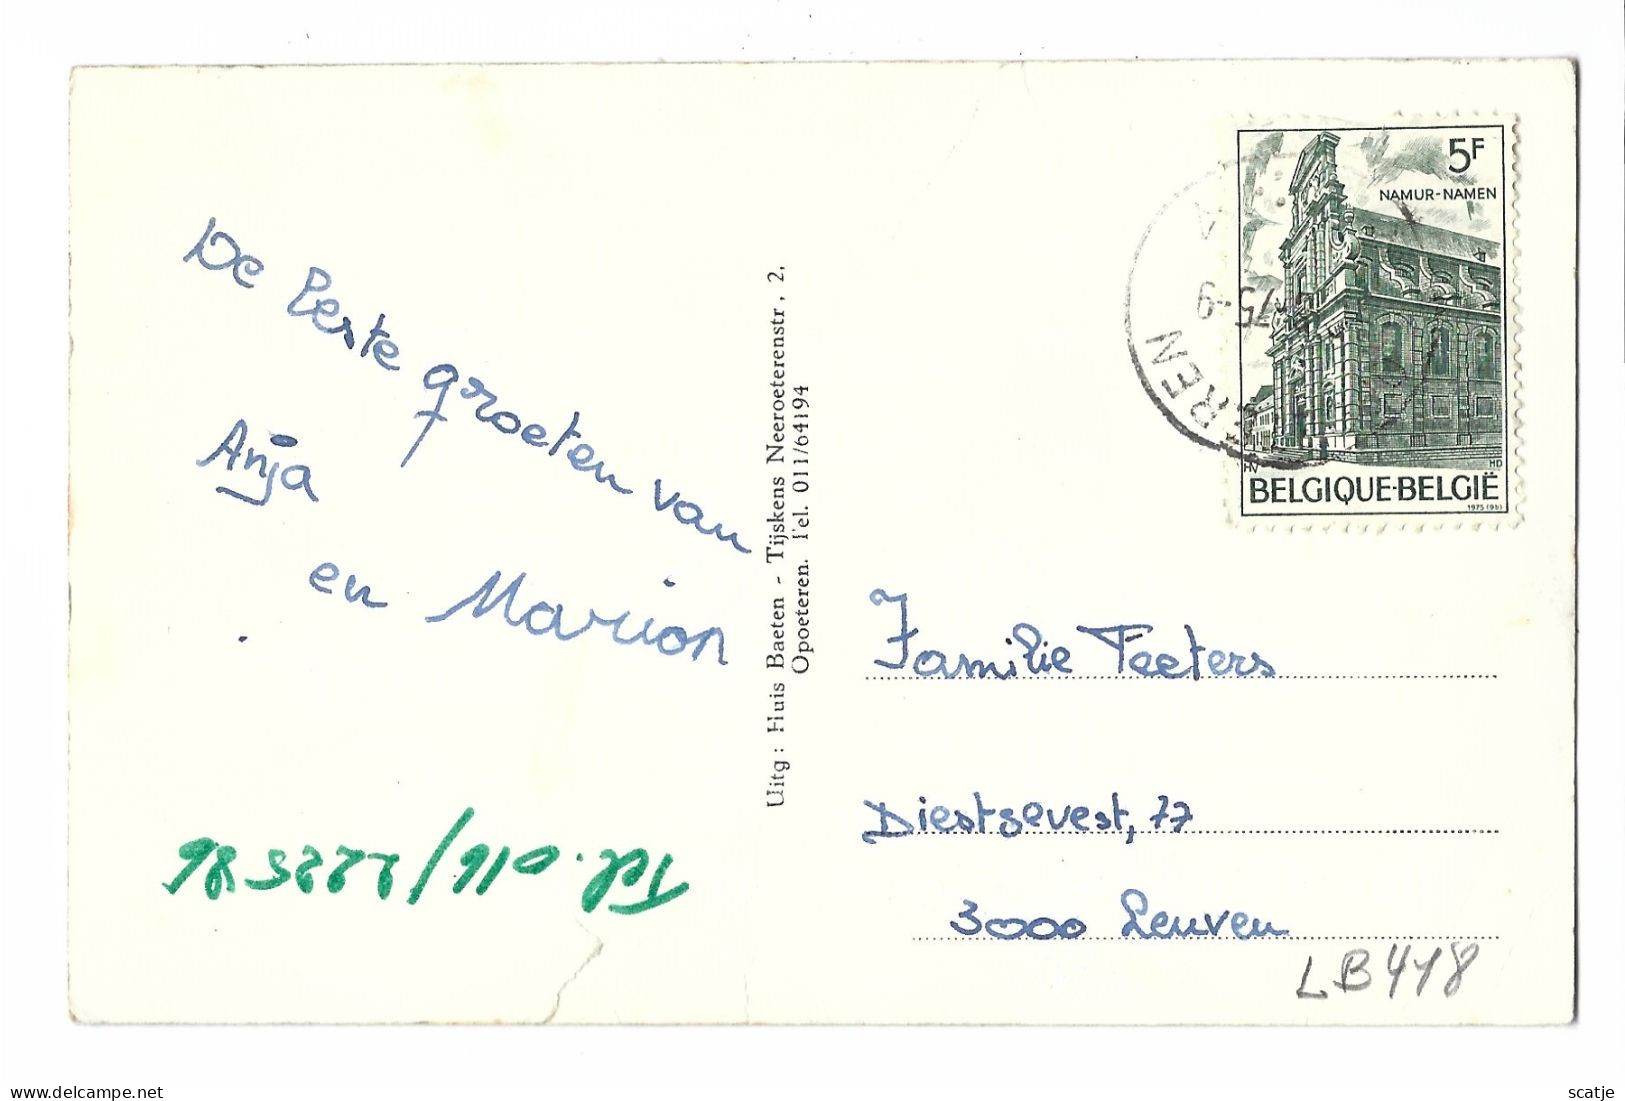 De beste groeten van
Anja
en Marion
Tel. 016/222586
Uitg : Huis Baeten - Tijskens Neeroeterenstr, 2,
Opoeteren. Tel. 011/64194
5F
NAMUR-NAMEN
HV
HD
BELGIQUE-BELGIË
1975 (9b)
A
75-9
EREN
Familie Peeters
Diestsevest, 77
3000 Leuven
LB418
scatje